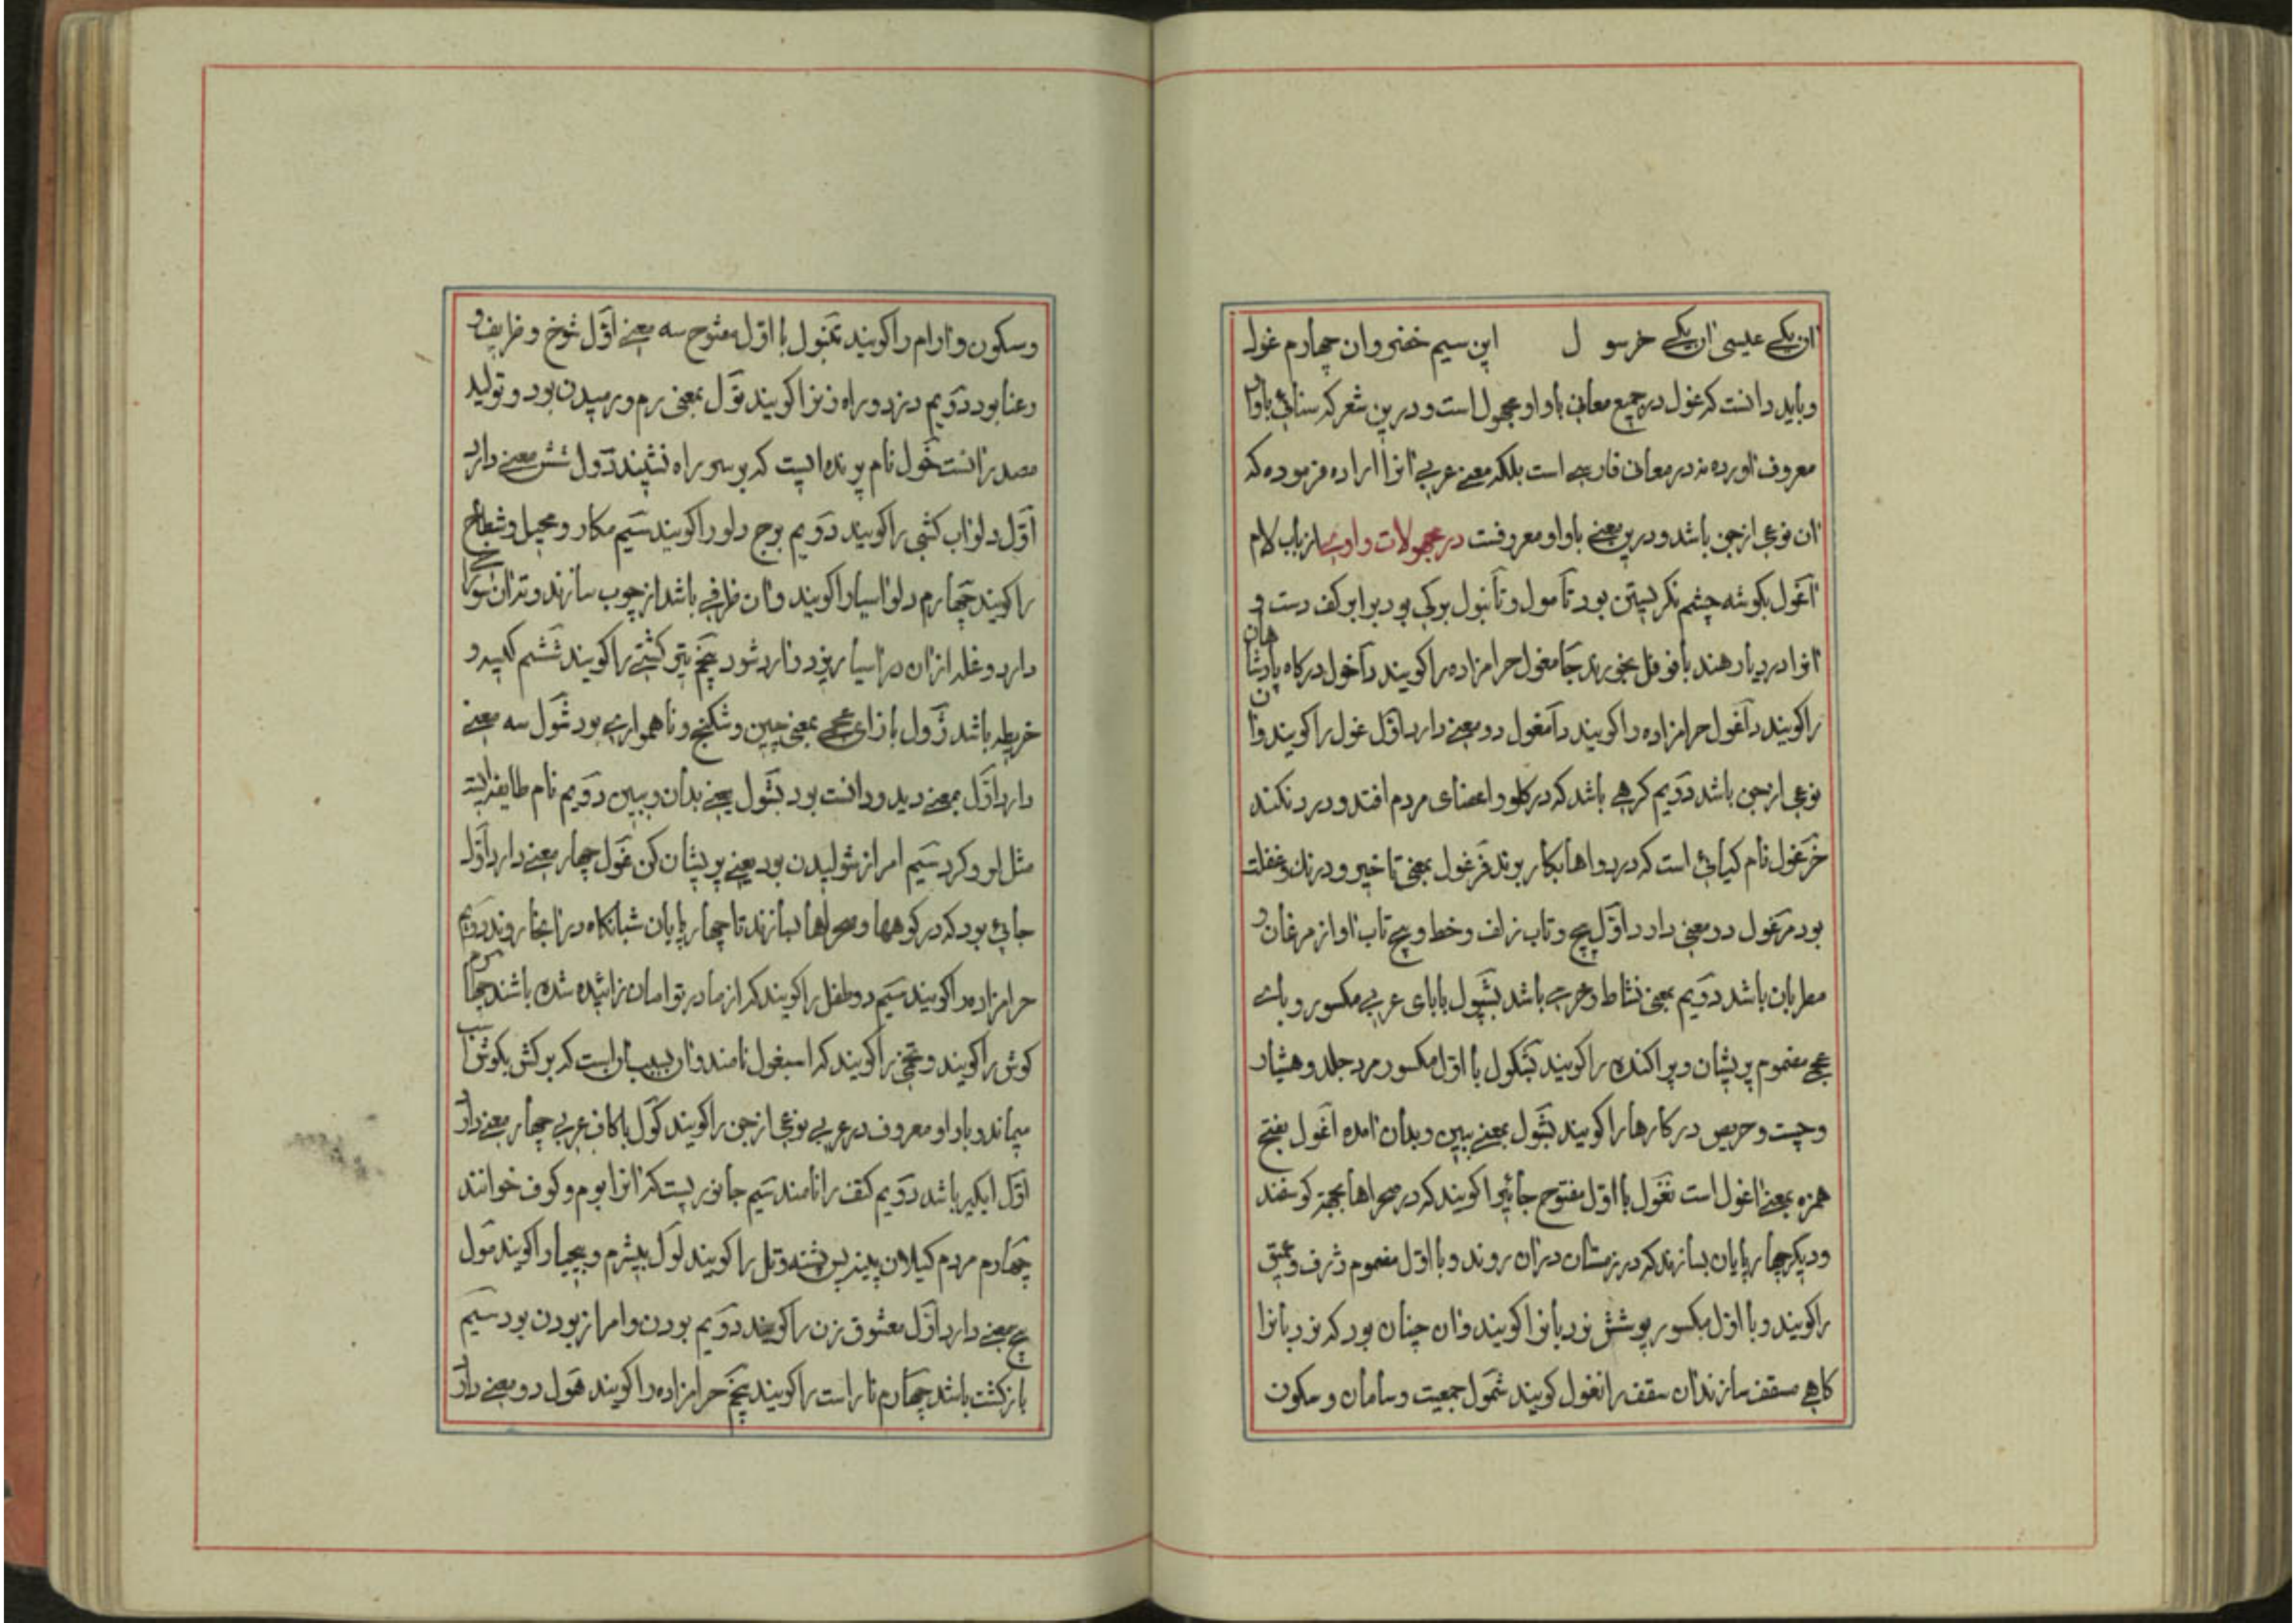 ان یکے عیسی ان یکے خرسو ل این سیم خضر وان چهارم غول
و باید دانست که غول در جمیع معانی باواو مجهول است و درین شعر که سنائی باواو
معروف آورده نه در معانی فارسے است بلکه معنے عربے انرا اراده فرموده که
ان نوعی از جن باشد و درین معنے باواو معروفست در مجهولات واوے از باب لام
آغول بکوشه چشم نکریستن بود تآمول و تآنبول برکی بود برابر کف دست و
انرا در دیار هند بافوفل بخورند جآمغول حرامزاده را کویند دآخول درکاه پادشاهان
را کویند دآغول حرامزاده را کویند دآمغول دو معنے دارد اوّل غول را کویند وان
نوعی از جن باشد دوّیم کرهے باشد که در کلو و اعضای مردم افتد و درد نکند
خرغول نام کیائی است که در دواها بکار برند فرغول بمعنی تاخیر و درنک و غفلت
بود مرغول دو معنی دارد اوّل پیچ و تاب زلف و خط و پیچ تاب اواز مرغان و
مطربان باشد دوّیم بمعنی نشاط و خرمے باشد بشپول بابای عربے مکسور و باے
عجمے مضموم پریشان و پراکنده را کویند بشکول با اوّل مکسور مرد جلد و هشیار
و چست و حریص در کارها را کویند بشول بمعنے ببین و بدان امده آغول بفتح
همزه بمعنے اغول است نغول با اوّل مفتوح جائیرا کویند که در صحراها بجهة کوسفند
و دیکر چهارپایان بسازند که در زمستان دران روند و با اوّل مضموم ژرف و عمیق
را کویند و با اوّل مکسور پوشش نردبانرا کویند وان چنان بود که نردبانرا
کاهے مسقف سازند ان سقف را نغول کویند شمول جمعیت و سامان و سکون
و سکون و ارام را کویند تمنول با اوّل مفتوح سه معنے اوّل شوخ و ظریف و
رعنا بود دوّیم دزد و راه زنرا کویند تول بمعنی رم و رمیدن بود و تولید
مصدر انست خول نام پرنده ایست که بر سر راه نشیند دول شش معنے دارد
اوّل دلو اب کشی را کویند دوّیم برج دلو را کویند سیم مکار و محیل و شطاح
را کویند چهارم دلو اسیا را کویند وان ظرفے باشد از چوب سازند و تران سوراخ
دارد و غله ازان در اسیا ریزد و ارد شود پنجم تیر کشتے را کویند ششم کیسه و
خریطه باشد ژول بازای عجمے بمعنی چین و شکنج و ناهموارے بود شول سه معنے
دارد اوّل بمعنے دید و دانست بود بشول یعنے بدان و ببین دوّیم نام طایفه ایست
مثل لر و کرد سیم امر از شولیدن بود یعنے پریشان کن غول چهار معنے دارد اوّل
جائی بود که در کوهها و صحراها بسازند تا چهارپایان شبانکاه در انجا روند دوّیم
حرامزاده را کویند سیم دو طفل را کویند که از مادر توامان زائیده شده باشند چهارم
کوش را کویند و تخمی را کویند که اسبغول نامند وان بسبب انست که برکش بکوش اسب
میماند و باواو معروف در عربے نوعی از جن را کویند کول باکاف عربے چهار معنے دارد
اوّل ابکیر باشد دوّیم کتف را نامند سیم جانوریست که انرا بوم و کوف خوانند
چهارم مردم کیلان پشته و تل را کویند لول بیشرم و بیحیا را کویند مول
پنج معنے دارد اوّل معشوق زن را کویند دوّیم بودن و امر از بودن بود سیم
بازکشت باشد چهارم ناراست را کویند پنجم حرامزاده را کویند هول دو معنے دارد